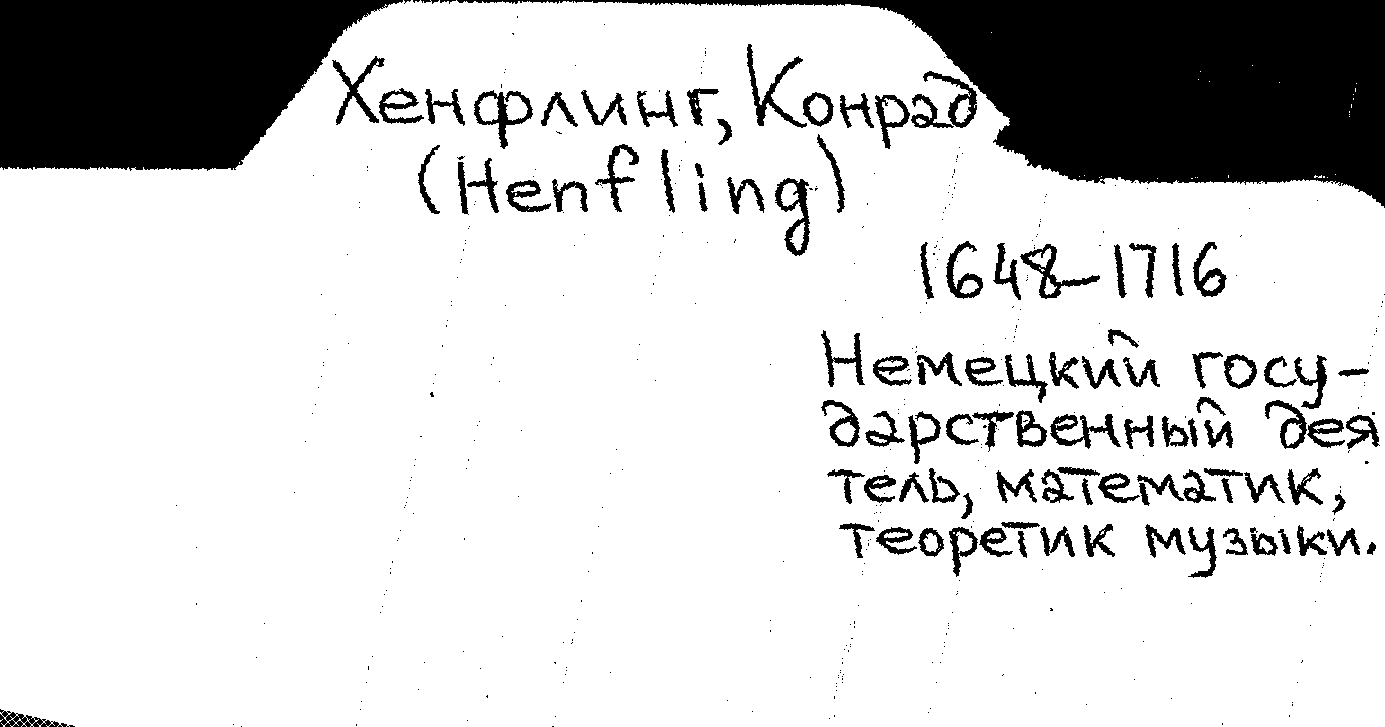 Хенфлинг, Конрад
(Henfling)
1648-1716
Немецкий госу-
дарственный дея
тель, математик,
теоретик музыки.